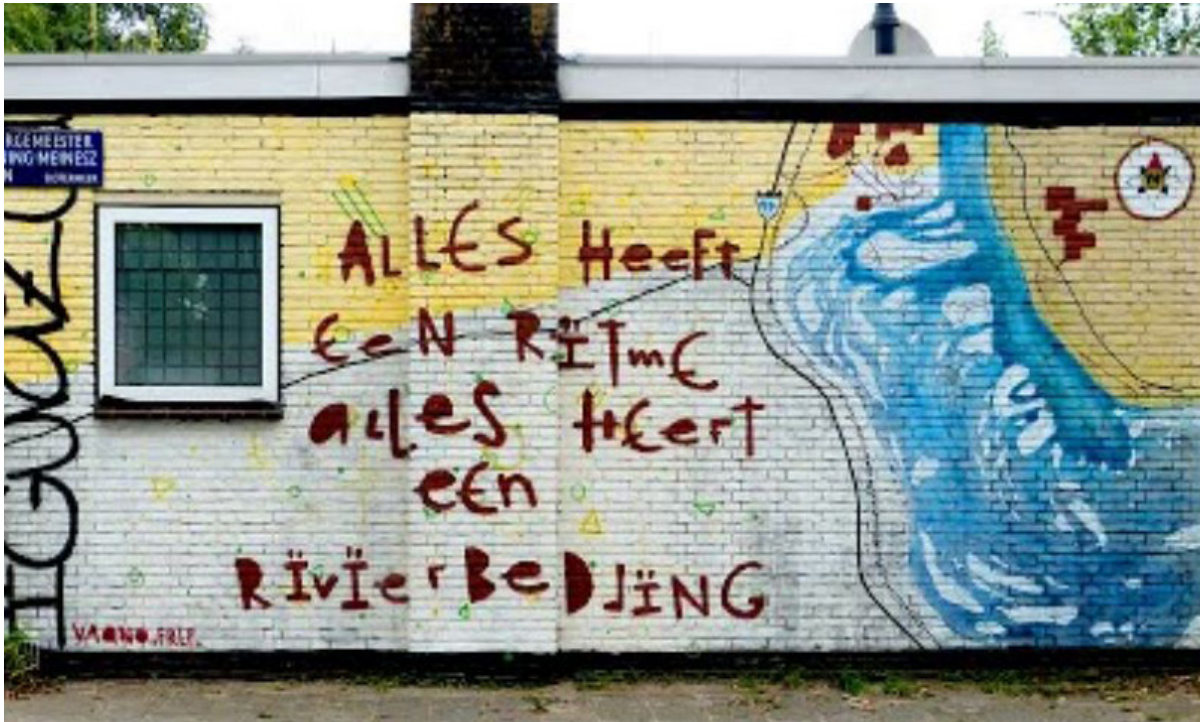 RGEMEESTER
ING MEINESZ
ALLES HeeFt
EeN RÏTmE
aLLeS HEerT
eEn
RÏvÏer BeDJÏNG